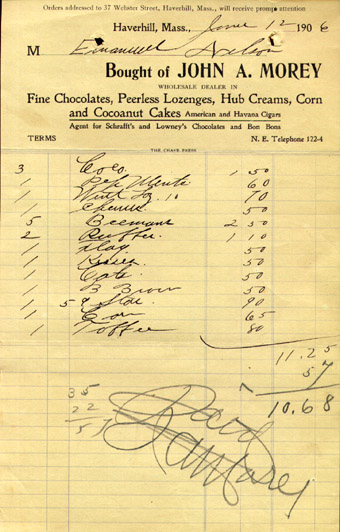 Orders addressed to 37 Webster Street, Haverhill, Mass., will receive prompt attention
Haverhill, Mass., June 12 1906
M Emanuel
Bought of JOHN A. MOREY
WHOLESALE DEALER IN
Fine Chocolates, Peerless Lozenges, Hub Creams, Corn
and Cocoanut Cakes American and Havana Cigars
Agent for Schrafft's and Lowney's Chocolates and Bon Bons
TERMS N. E. Telephone 122-4
THE CHASE PRESS
3 Coco. 1 50
1 Pep Mints 60
1 Wint 70
1 50
5 Beemans 2 50
2 1 10
1 50
1 Kisses 50
1 50
1 B Brown 50
1 5 90
1 Corn 65
1 Toffee 80
11.25
57
10.68
35
22
57
Paid
JAMorey